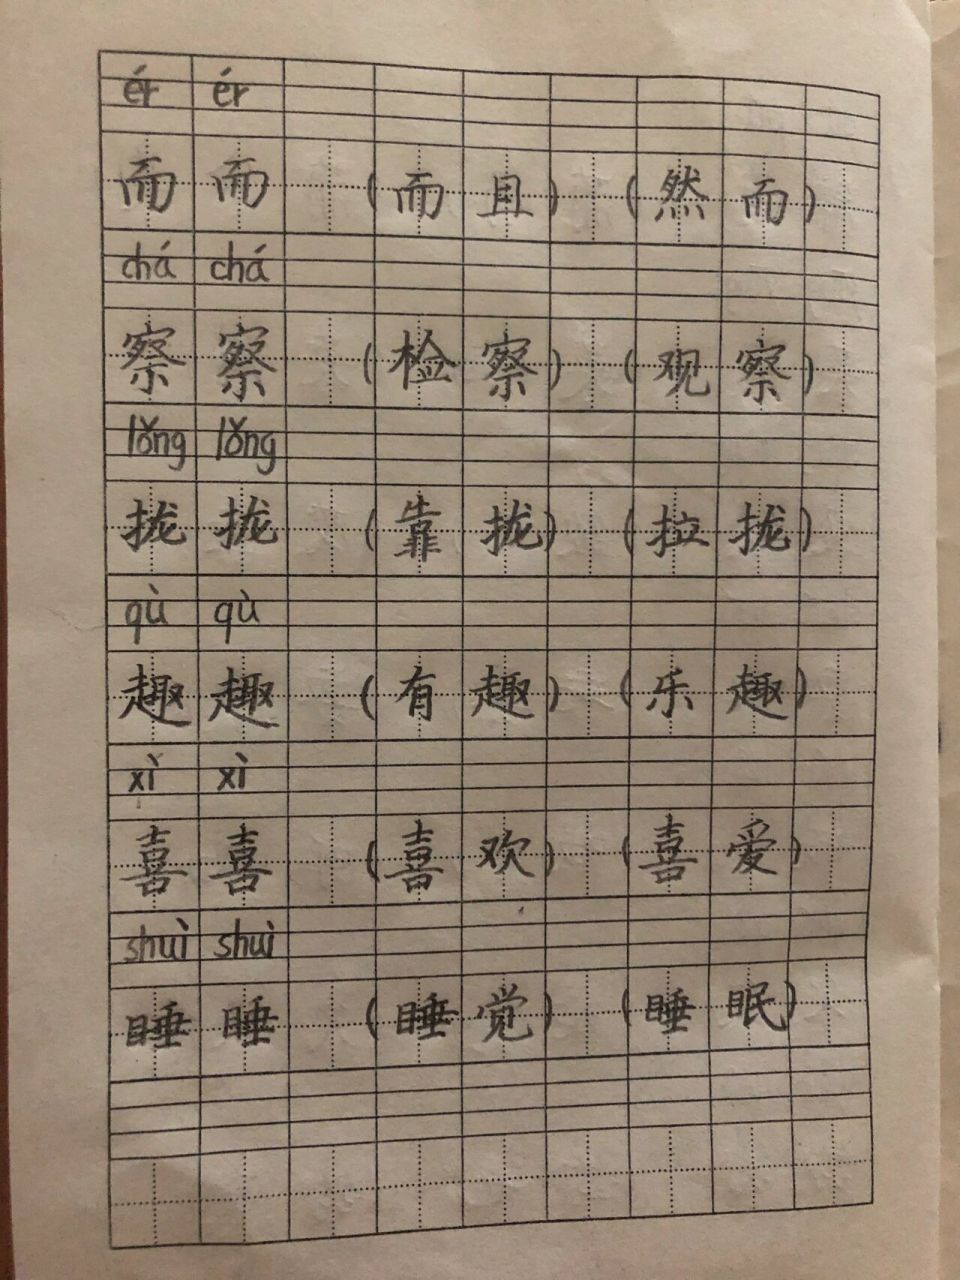 ér ér
而 而 (而且) (然而)
chá chá
察 察 (检察) (观察)
lǒng lǒng
拢 拢 (靠拢) (拉拢)
qù qù
趣 趣 (有趣) (乐趣)
xǐ xì
喜 喜 (喜欢) (喜爱)
shuì shuì
睡 睡 (睡觉) (睡眠)